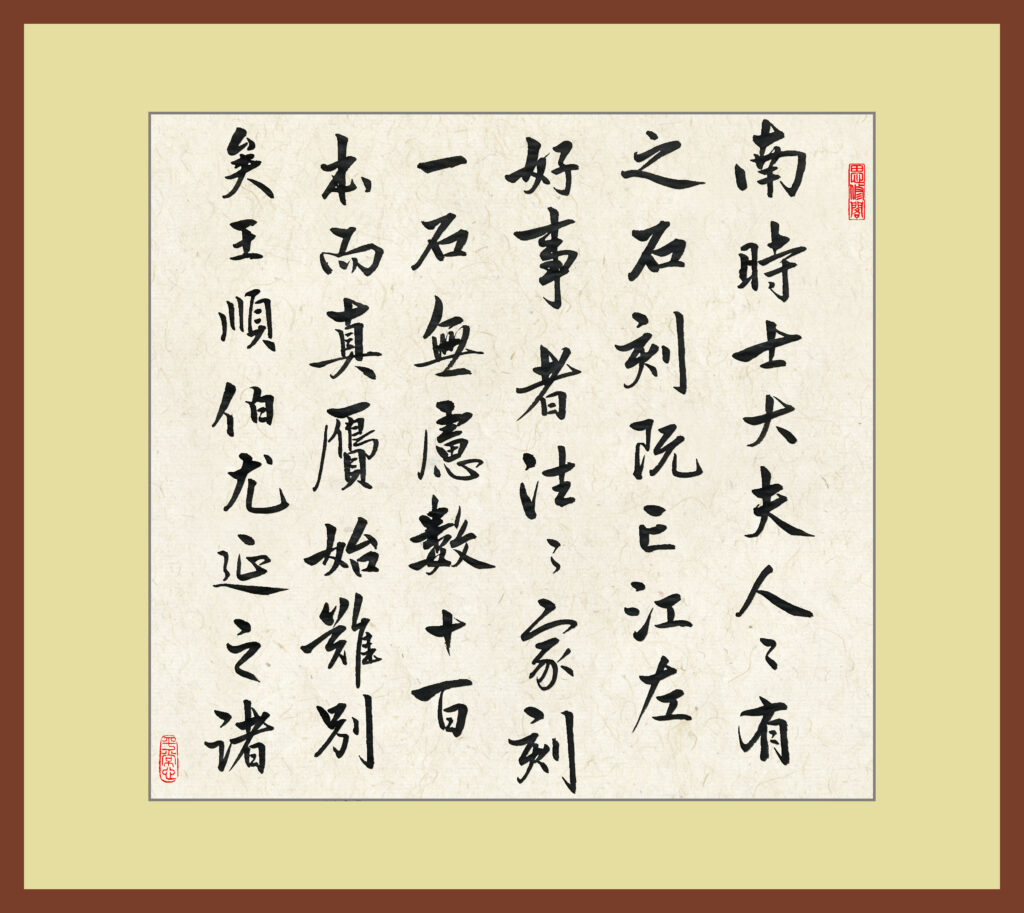 思修閣
南時士大夫人〻有
之石刻既亡江左
好事者往〻家刻
一石無慮數十百
本而真贋始難別
矣王順伯尤延之諸
平常心